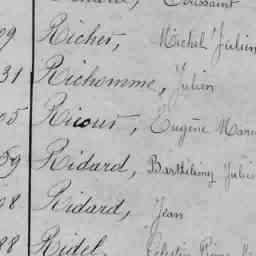 Toussaint
09 Richer, Michel Julien
31 Richomme, Julien
05 Ricour, Eugène Marie
59 Ridard, Barthélémy Julien
08 Ridard, Jean
88 Ridel, Célestin